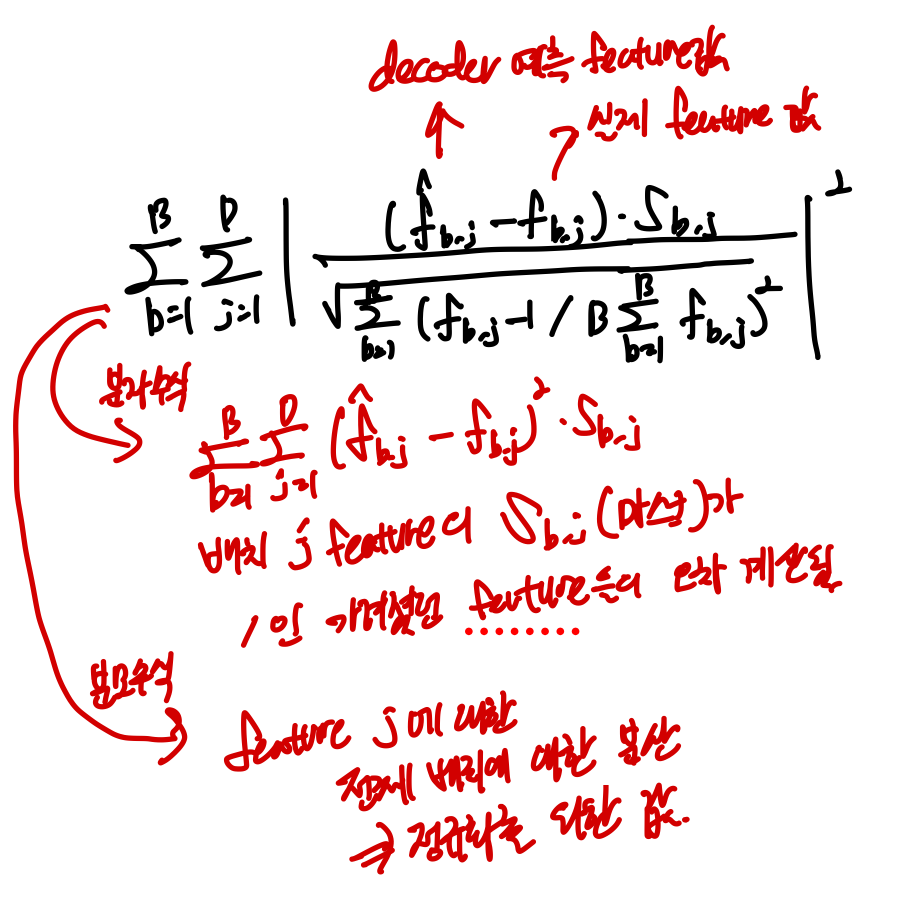 decoder 예측 feature값
실제 feature 값
\sum_{b=1}^{B} \sum_{j=1}^{D} \left| \frac{(\hat{f}_{b,j} - f_{b,j}) \cdot S_{b,j}}{\sqrt{\sum_{b=1}^{B} (f_{b,j} - 1 / B \sum_{b=1}^{B} f_{b,j})^2}} \right|^2
분자수식
\sum_{b=1}^{B} \sum_{j=1}^{D} (\hat{f}_{b,j} - f_{b,j})^2 \cdot S_{b,j}
배치 j feature의 S_{b,j} (마스킹)가
1인 가려졌던 feature들의 오차 계산됨
분모수식
feature j에 대한
전체 배치에 대한 분산
⇒ 정규화를 위한 값.